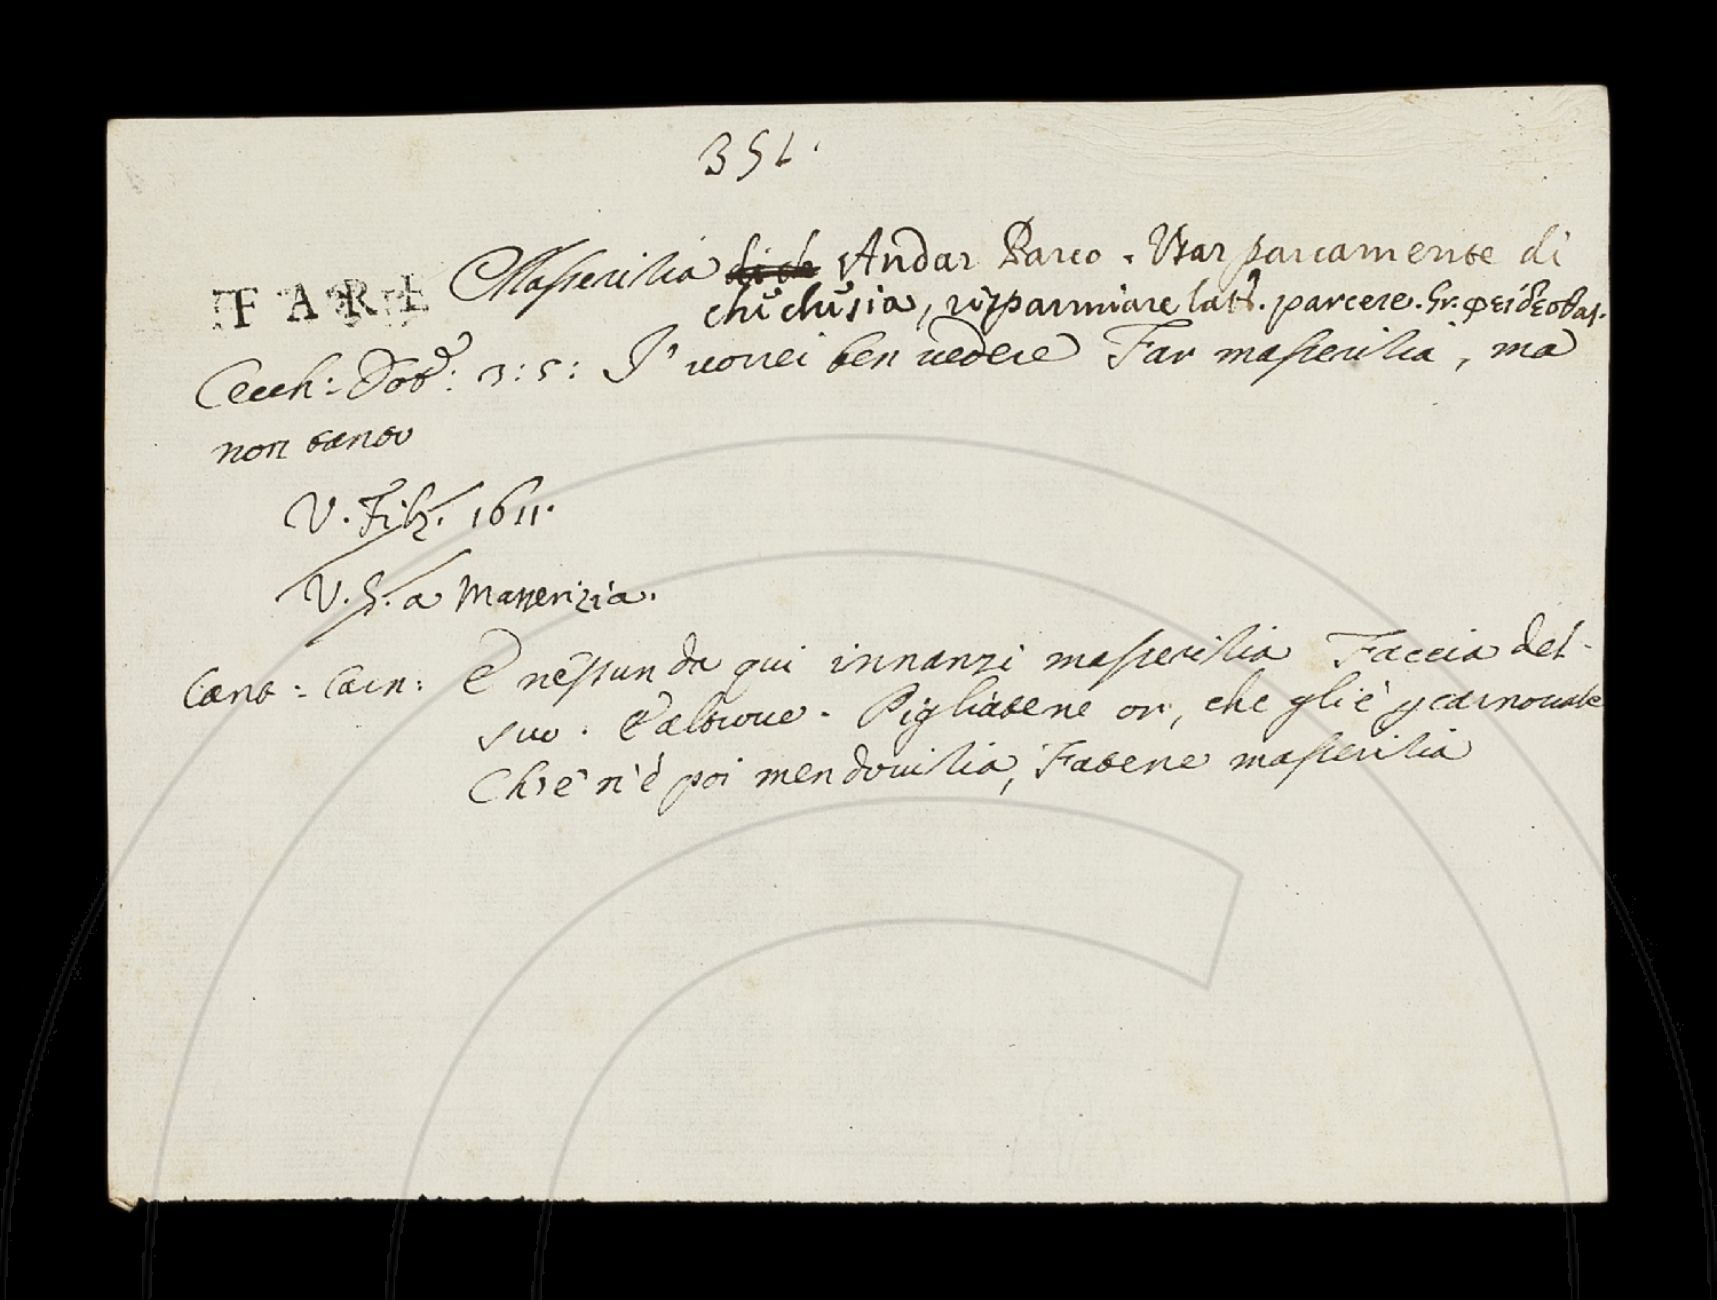 351.
FARE Masserizia di ch Andar Parco. Usar parcamente di
chicchesia, risparmiare latt. parcere. Gr. φείδεσθαι.
Cecch: Dot: 3:5: I' vorrei ben vedere Far masserizia, ma
non tanto
V. Filz. 1611.
V. S. a Masserizia.
Cant: Carn: E nessun da qui innanzi masserizia Faccia del
suo. E altrove. Pigliatene or, che gli è p carnovale
Ch'e n'è poi men dovizia, Fatene masserizia